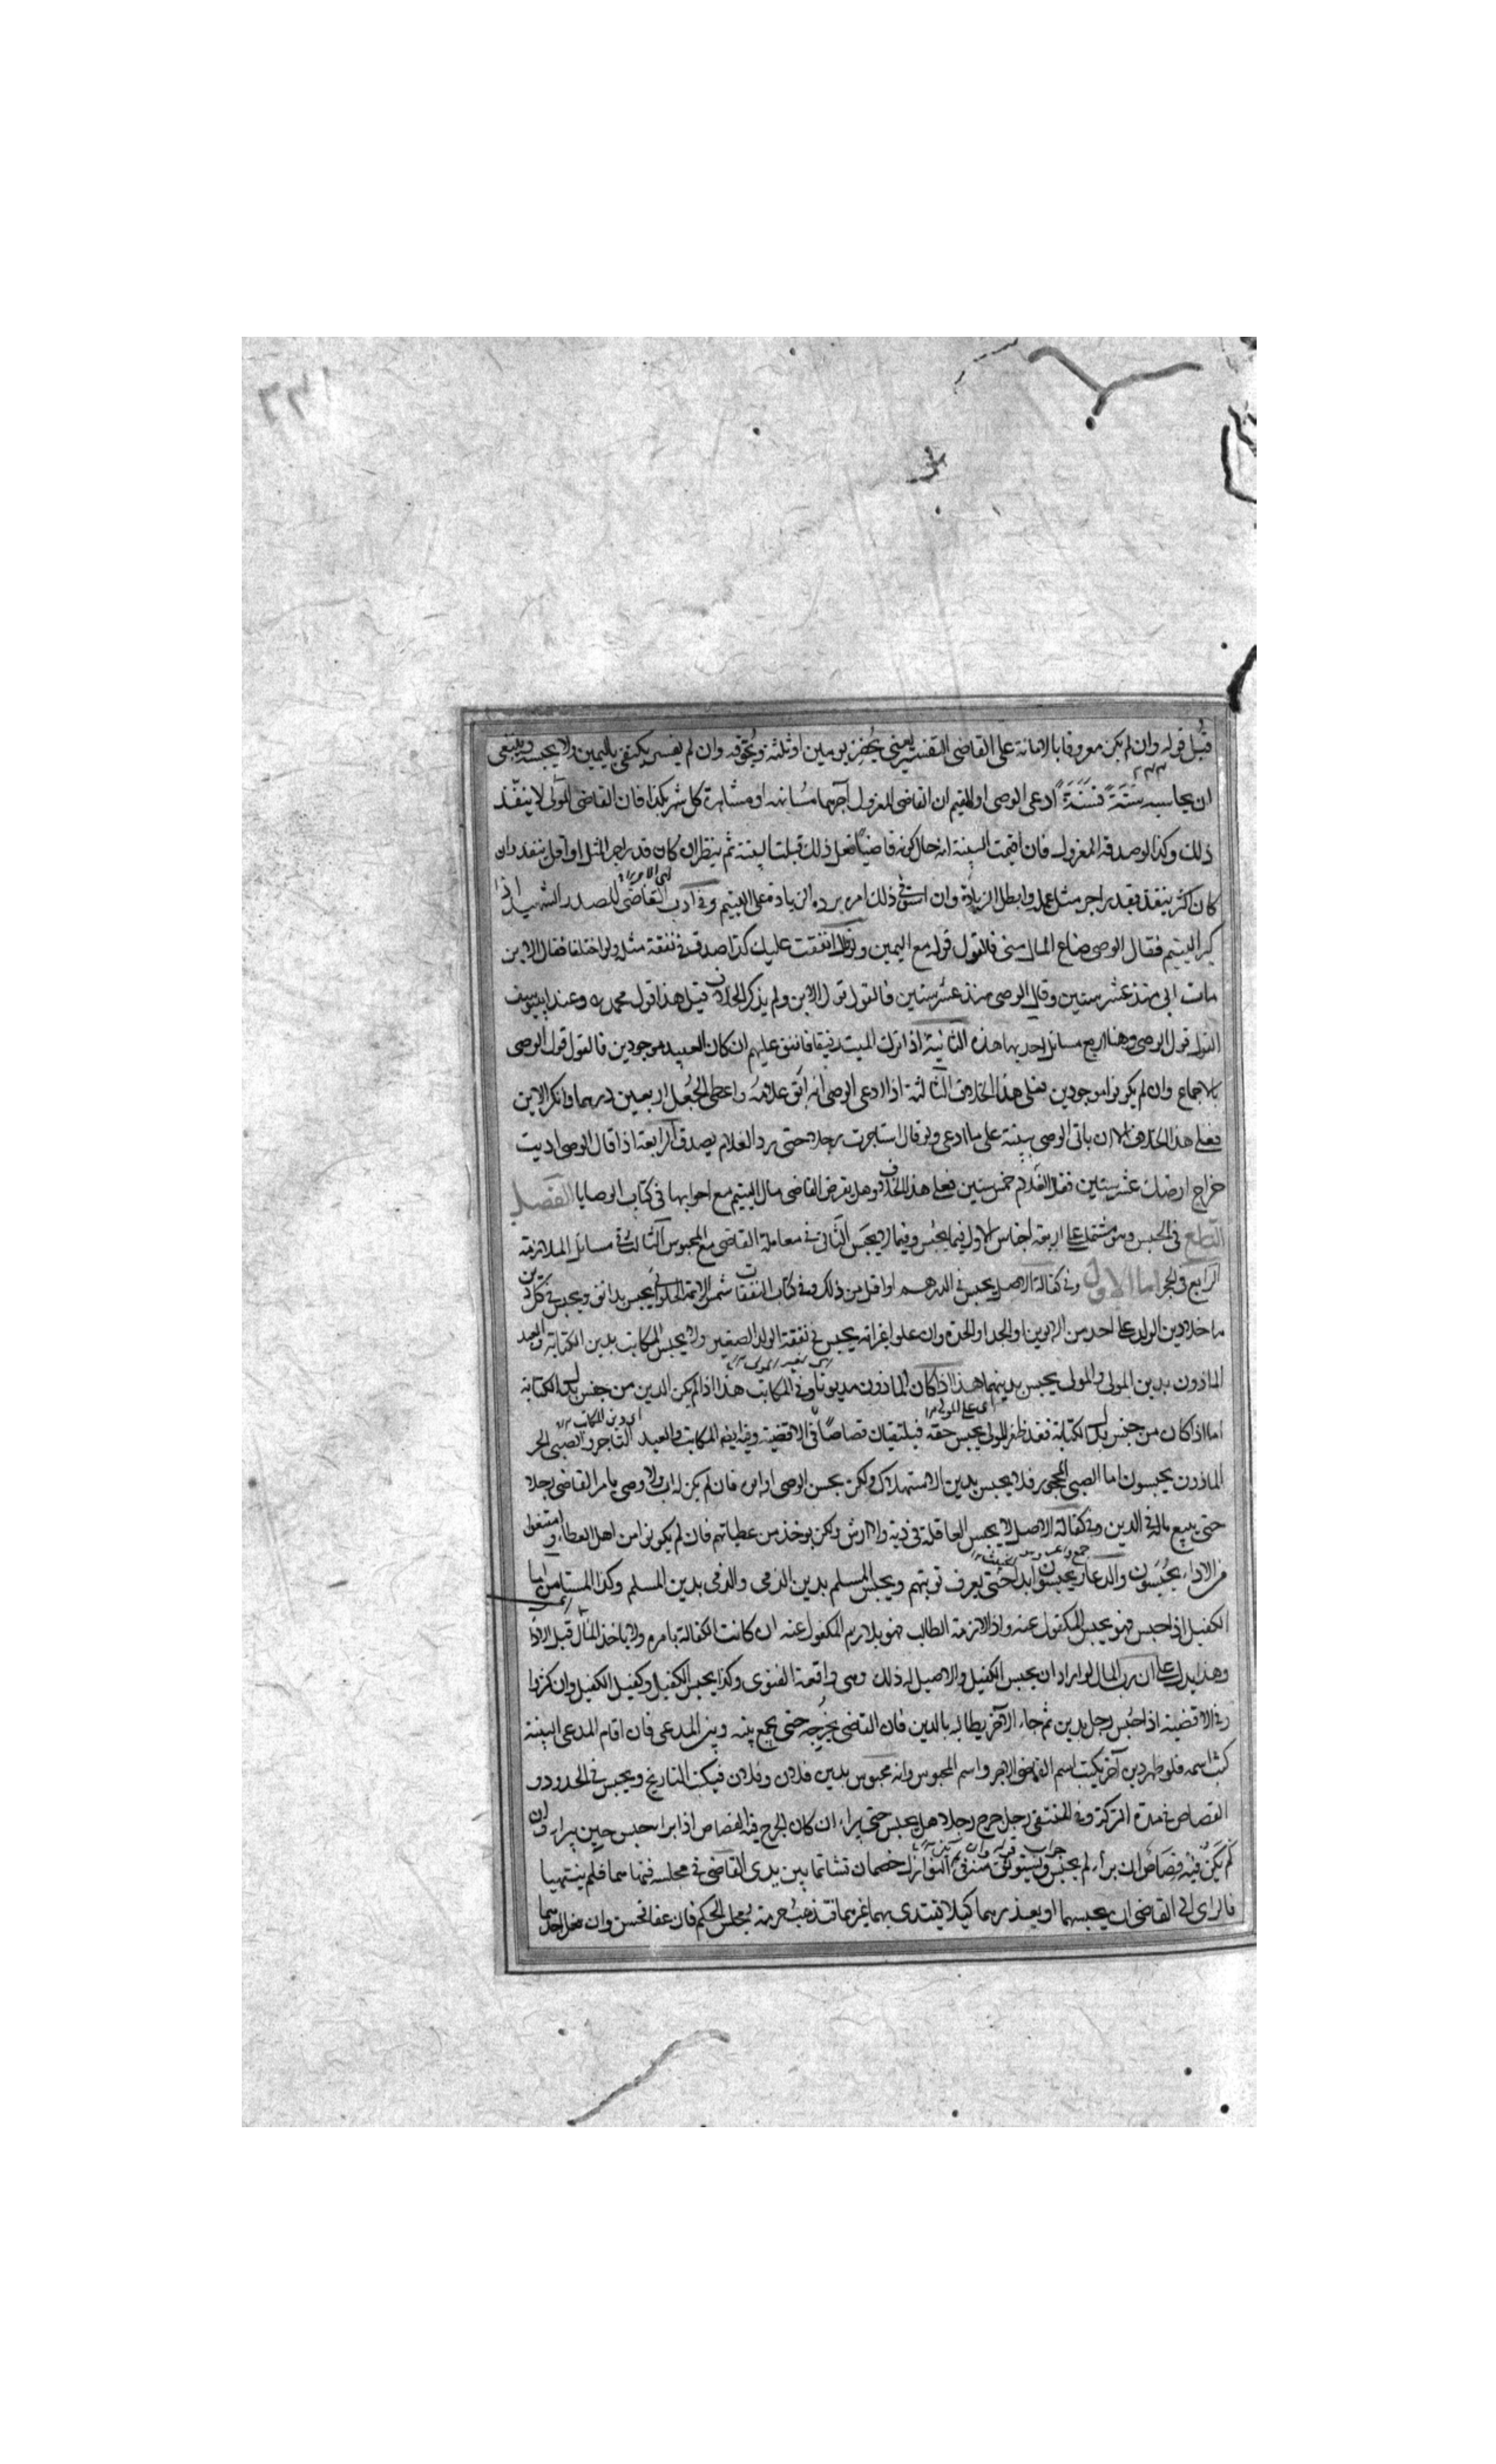 قُبل قوله وان لم يكن معروفا بالامانة على القاضى التفسير يعنى يُحضر يومين او ثلثة ويُخوّفه وان لم يفسر يكتفى باليمين ولا يحبسه وينبغى
ان يحاسبه سَنَةً فَسَنَةً ادعى الوصى او القيم ان القاضى المعزول آجرهما مسانهة او مشاهرة كل شهر بكذا فان القاضى المولّى لا ينفّذ
ذلك وكذا لو صدقه المعزول فان اقيمت البينة انه حال كونه قاضيا فعل ذلك قبلت البينة ثم ينظر ان كان قدر اجر المثل او اقل ينفذ وان
كان اكثر ينفذ بقدر اجر مثل عمله وابطل الزيادة وان استوفى ذلك امر برده الزيادة على اليتيم وفى ادب القاضى للصدر الشهيد اذا
كبر اليتيم فقال الوصى ضاع المال منى فالقول قوله مع اليمين ولو قال انفقت عليك كذا صدق فى نفقة مثله ولو اختلفا فقال الابن
مات ابى منذ عشر سنين وقال الوصى منذ عشر سنين فالقول قول الابن ولم يذكر الخلاف قيل هذا قول محمد ره وعند ابى يوسف
القول قول الوصى وهنا اربع مسائل احديها هذه الثانية اذا ترك الميت رقيقا فانفق عليهم ان كان العبيد موجودين فالقول قول الوصى
بالاجماع وان لم يكونوا موجودين فعلى هذا الخلاف الثالثة اذا ادعى الوصى انه ابق غلامه واعطى الجُعل اربعين درهما وانكر الابن
فعلى هذا الخلاف الا ان ياتى الوصى ببينة على ما ادعى ولو قال استاجرت رجلا حتى رد الغلام يصدق الرابعة اذا قال الوصى اديت
خراج ارضك عشر سنين فقال الغلام خمس سنين فعلى هذا الخلاف وهل يقرض القاضى مال اليتيم مع اجوابها فى كتاب الوصايا الفصل
فى الحبس وهو مشتمل على اربعة اجناس الاول فيما يحبس وفيما لا يحبس الثانى فى معاملة القاضى مع المحبوس الثالث فى مسائل الملازمة
الرابع فى الحجر اما الاول وفى كفالة الاصل يحبس فى الدرهم او اقل من ذلك وفى كتاب النفقات شمس الائمة الحلوانى يحبس بدانق ويحبس فى كل دين
ما خلا دين الولد على احد من الابوين او الجد او الجدة وان علوا غير انه يحبس فى نفقة الولد الصغير ولا يحبس المكاتب بدين الكتابة والعبد
الماذون بدين المولى والمولى يحبس بدينهما هذا اذا كان الماذون مديونا وفى المكاتب هذا اذا لم يكن الدين من جنس بدل الكتابة
اى على المولى
اما اذا كان من جنس بدل الكتابة فقد ظفر المولى بجنس حقه فيلتقيان قصاصا وفى الاقضية وفيه ايضا المكاتب والعبد التاجر والصبى الحر
الماذون يحبسون اما الصبى المحجور فلا يحبس بدين الاستهلاك ولكن يحبس الوصى او اب فان لم يكن له اب ولا وصى يامر القاضى رجلا
حتى يبيع ماله فى الدين وفى كفالة الاصل لا يحبس العاقلة فى دية والارش ولكن يوخذ من عطياتهم فان لم يكونوا من اهل العطاء وامتنعوا
من الاداء يحبسون والدعار يحبسون ابدا حتى يعرف توبتهم ويحبس المسلم بدين الذمى والذمى بدين المسلم وكذا المستامن اما
الكفيل اذا حبس فهو يحبس المكفول عنه واذا لازمه الطالب فهو يلازم المكفول عنه ان كانت الكفالة بامره ولا ياخذ المال قبل الاداء
وهذا يدل على ان رب المال لو اراد ان يحبس الكفيل والاصيل له ذلك وهى واقعة الفتوى وكذا يحبس الكفيل وكفيل الكفيل وان كثروا
وفى الاقضية اذا حبس رجل بدين ثم جاء الآخر يطالبه بالدين فان القاضى يخرجه حتى يجمع بينه وبين المدعى فان اقام المدعى البينة
كتب اسمه فلو ظهر دين آخر يكتب اسم القاضى الاجر واسم المحبوس وانه محبوس بدين فلان وفلان فيكتب التاريخ ويحبس فى الحدود و
القصاص فى مدة التزكية وفى المنتقى رجل جرح رجلا هل يحبس حتى يبراء ان كان الجرح فيه القصاص اذا برا حبس حين يبراء وان
لم يكن فيه قصاص ان براء لم يحبس ويستوثق منه وفى النوازل خصمان تشاتما بين يدى القاضى فى مجلسه فنهاهما فلم ينتهيا
فالراى الى القاضى ان يحبسهما او يعذرهما كيلا يقتدى بهما غيرهما فتذهب حرمة مجلس الحكم فان عفا فحسن وان فعل احدهما